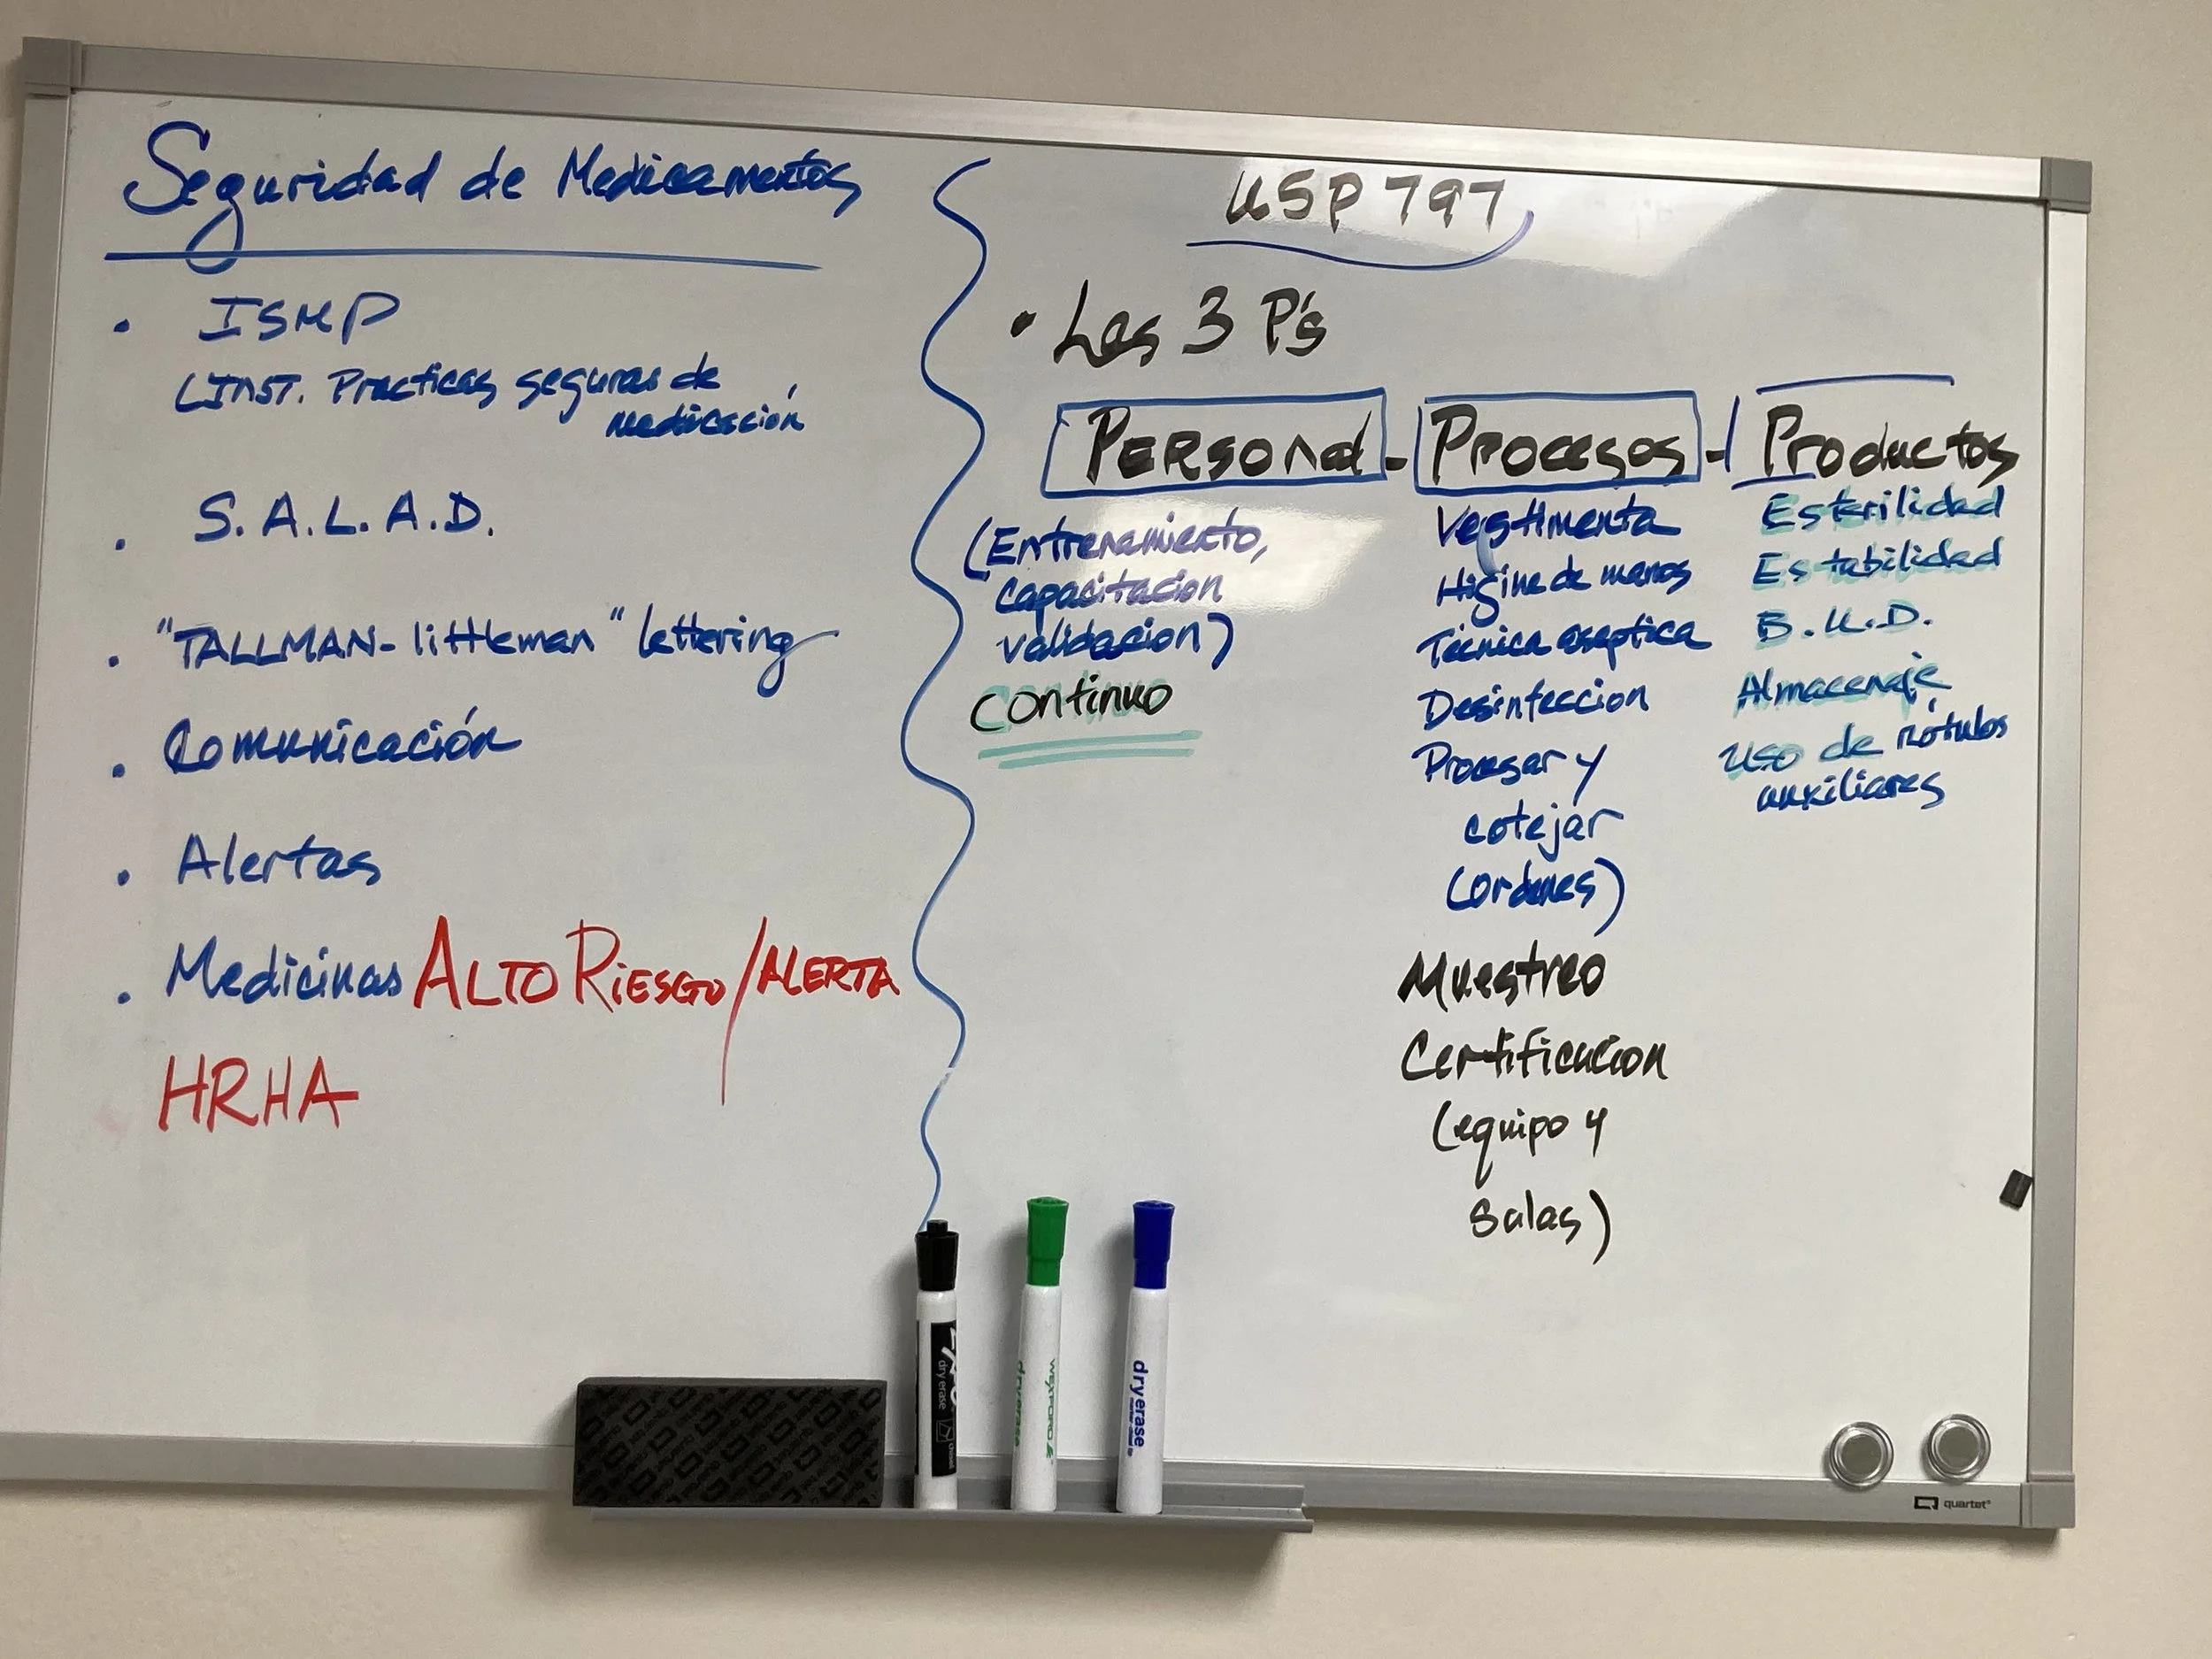 Seguridad de Medicamentos
• ISMP
(INST. Practicas seguras de
medicación
• S.A.L.A.D.
• "TALLMAN-littleman" lettering
• Comunicación
• Alertas
• Medicinas ALTO RIESGO/ALERTA
HRHA
USP 797
• Las 3 P's
PERSONAL - Procesos - Productos
(Entrenamiento,
capacitacion
validacion)
continuo
Vestimenta
Higine de manos
Técnica aseptica
Desinfeccion
Procesar y
cotejar
(ordenes)
Muestreo
Certificacion
(equipo y
salas)
Esterilidad
Estabilidad
B.U.D.
Almacenaje
Uso de rótulos
auxiliares
dry erase
WEXFORD
dry erase
dry erase
quartet